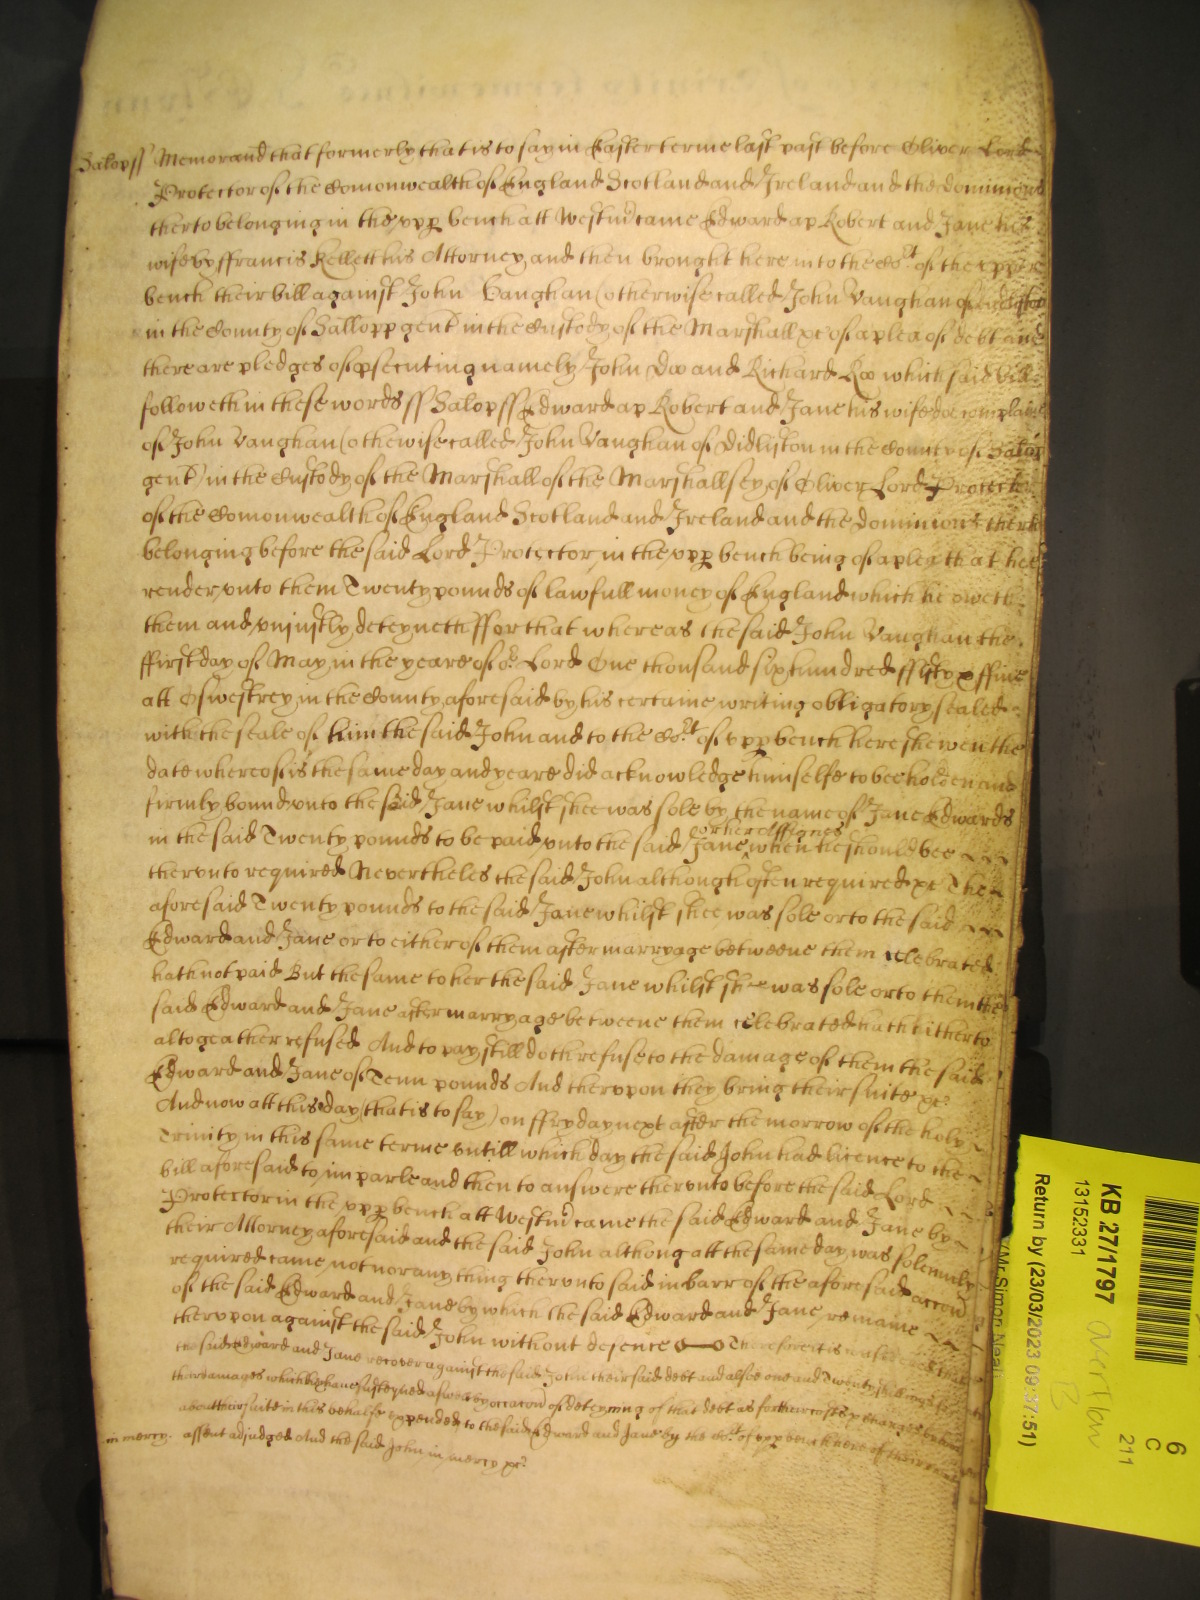 Salopss Memorand that formerly that is to say in Easter terme last past before Oliver Lord
Protector of the Comonwealth of England Scotland and Ireland and the dominions
therto belonging in the upp bench att Westm came Edward ap Robert and Jane his
wife by ffrancis Kellett his Attorney and then brought here into the Cort of the upper
bench their bill against John Vaughan (otherwise called John Vaughan of
in the County of Sallopp gent) in the Custody of the Marshall &c of a plea of debt and
there are pledges of psecuting namely John Doo and Richard Roo which said bill
followeth in these words ss Salopss Edward ap Robert and Jane his wife doe complaine
of John Vaughan (othewise called John Vaughan of Didliston in the County of Salop
gent) in the Custody of the Marshall of the Marshallsey of Oliver Lord Protector
of the Comonwealth of England Scotland and Ireland and the Dominions therto
belonging before the said Lord Protector in the upp bench being of a plea that hee
render unto them Twenty pounds of lawfull money of England which he oweth
them and uniustly deteyneth ffor that whereas the said John Vaughan the
ffirst day of May in the yeare of or Lord One thousand six hundred ffifty & ffive
att Oswestrey in the County aforesaid by his certaine writing obligatory sealed
with the seale of him the said John and to the Cort of upp bench here shewen the
date whereof is the same day and yeare did acknowledge himselfe to bee holden and
firmly bound unto the said Jane whilst shee was sole by the name of Jane Edwards
or her assignes
in the said Twenty pounds to be paid unto the said Jane when he should bee
therunto required Nevertheles the said John although often required &c The
aforesaid Twenty pounds to the said Jane whilst shee was sole or to the said
Edward and Jane or to either of them after marryage betweene them celebrated
hath not paid But the same to her the said Jane whilst shee was sole or to them the
said Edward and Jane after marryage betweene them celebrated hath hitherto
altogeather refused And to pay still doth refuse to the damage of them the said
Edward and Jane of Tenn pounds And therupon they bring their suite &c
And now att this day (that is to say) on ffryday next after the morrow of the holy
Trinity in this same terme untill which day the said John had licence to the
bill aforesaid to imparle and then to answere therunto before the said Lord
Protector in the upp bench att Westm came the said Edward and Jane by
their Attorney aforesaid and the said John althoug att the same day was solemnly
required came not nor any thing therunto said in barr of the aforesaid accon
of the said Edward and Jane by which the said Edward and Jane remaine
therupon against the said John without defence Therefore it is considered that
the said Edward and Jane recover against the said John their said debt and alsoe one and Twenty shillings for
their damages which they have susteyned aswell by occacon of deteyning of that debt as for their costs & charges
about their suite in this behalfe expended to the said Edward and Jane by the Cort of upp bench here of their
in mercy. assent adjudged And the said John in mercy &c
KB 27/1797
13152331
Return by (23/03/2023 09:37:51)
6
C
211